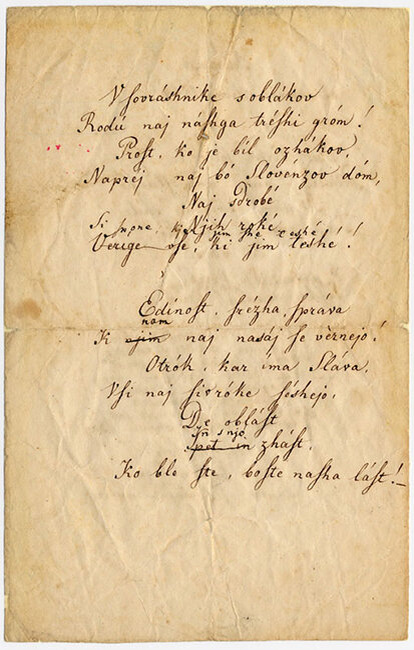 V ſovráshnike s oblákov
Rodú naj náſhga tréſhi gróm!
Proſt, ko je bil ozhákov,
Naprej naj bó Slovénzov dóm,
Naj sdrobé
Njih roké
Si spone, ki jim she teshé
Verige vſe, ki jim teshé!
Edínoſt, ſrézha, ſpráva
nam
K njim naj nasáj ſe vèrnejo!
Otrók, kar íma Sláva,
Vſi naj ſi v róke ſéshejo,
De obláſt
in s njo
ſpet in zháſt,
Ko ble ſte, boſte naſha láſt!—